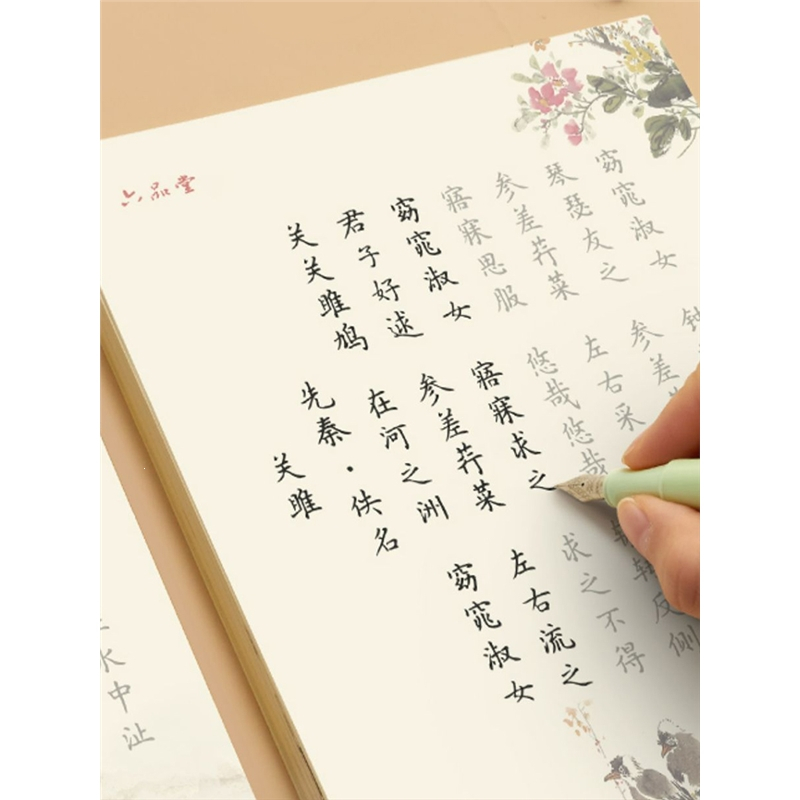 六品堂
关雎
先秦·佚名
关关雎鸠 在河之洲 窈窕淑女
君子好逑 参差荇菜 左右流之
窈窕淑女 寤寐求之 求之不得
寤寐思服 悠哉悠哉 转反侧
参差荇菜 左右采
琴瑟友之 参差
窈窕淑女
水中沚